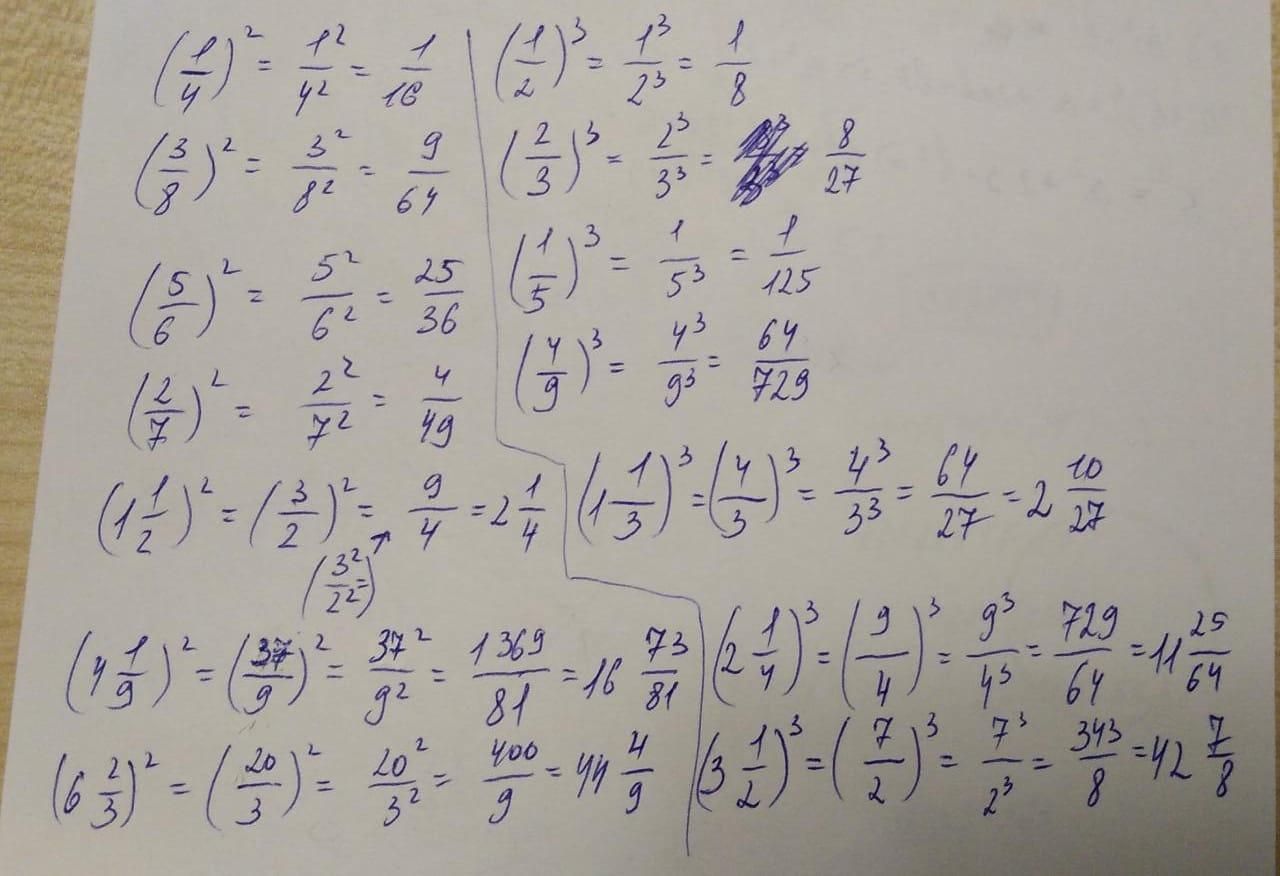 (1/4)² = 1²/4² = 1/16
(3/8)² = 3²/8² = 9/64
(5/6)² = 5²/6² = 25/36
(2/7)² = 2²/7² = 4/49
(1 1/2)² = (3/2)² = 9/4 = 2 1/4
(3²/2² =)
(4 1/9)² = (37/9)² = 37²/9² = 1369/81 = 16 73/81
(6 2/3)² = (20/3)² = 20²/3² = 400/9 = 44 4/9
(1/2)³ = 1³/2³ = 1/8
(2/3)³ = 2³/3³ = 8/27
(1/5)³ = 1/5³ = 1/125
(4/9)³ = 4³/9³ = 64/729
(1 1/3)³ = (4/3)³ = 4³/3³ = 64/27 = 2 10/27
(2 1/4)³ = (9/4)³ = 9³/4³ = 729/64 = 11 25/64
(3 1/2)³ = (7/2)³ = 7³/2³ = 343/8 = 42 7/8